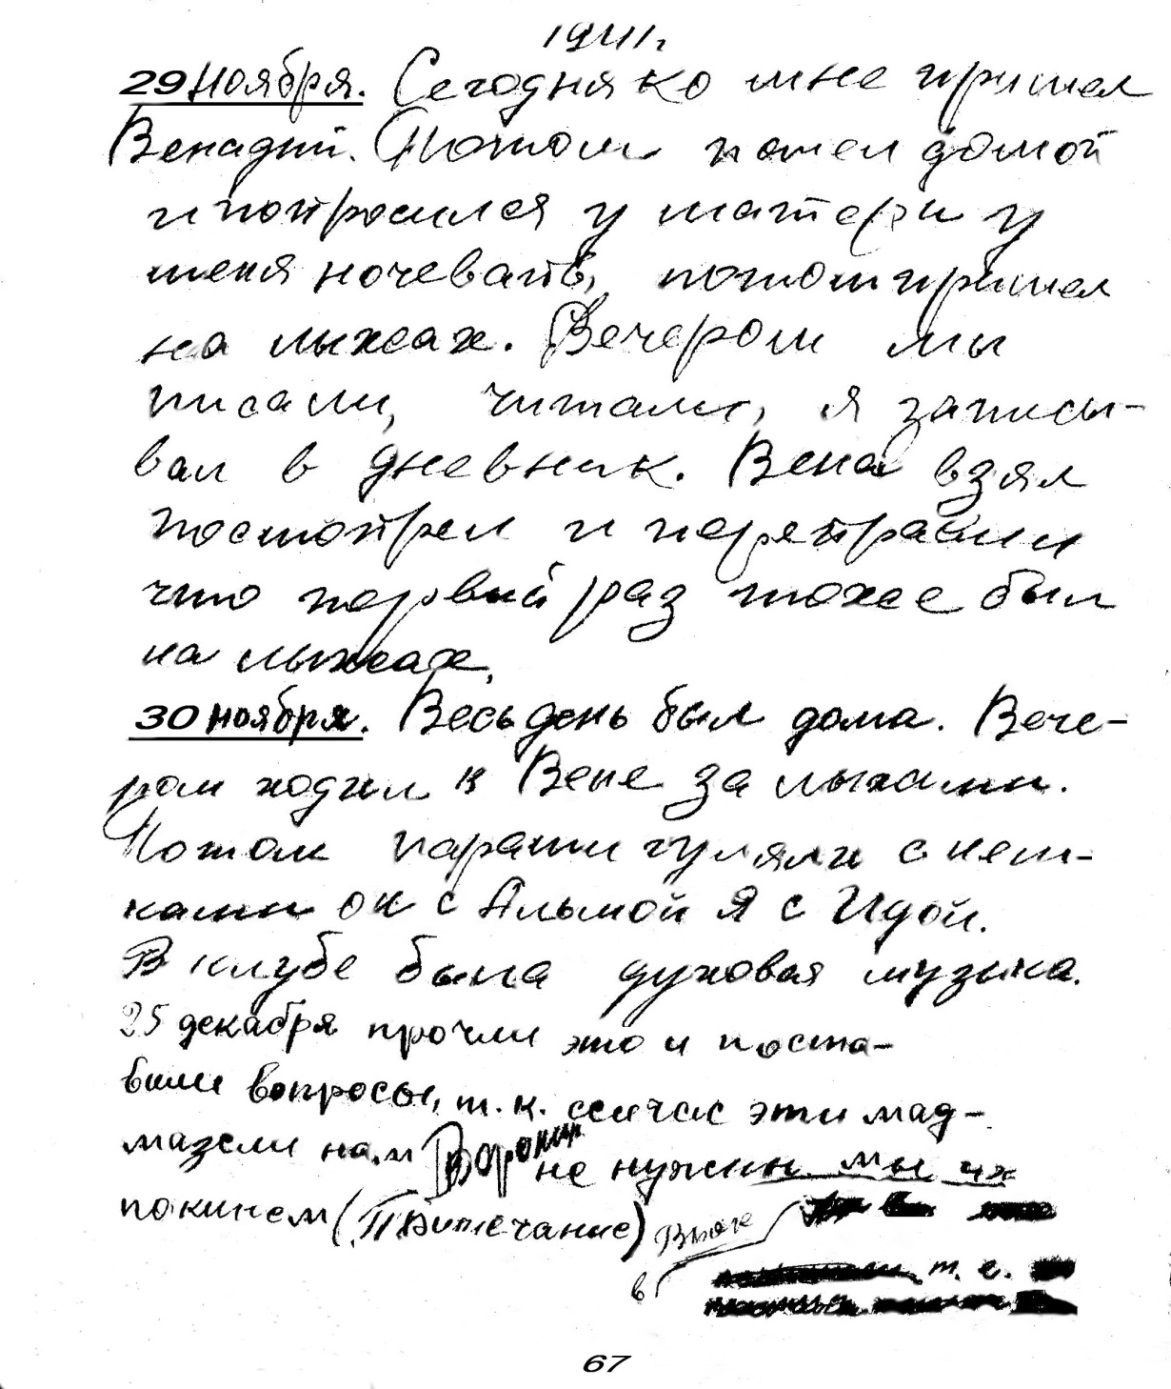 1941г.
29 ноября. Сегодня ко мне пришел
Венадий. Потом пошел домой
и попросился у матери у
меня ночевать, потом пришел
на лыжах. Вечером мы
писали, читали, я записы-
вал в дневник. Вена взял
посмотрел и перепрасили
что первый раз тоже был
на лыжах.
30 ноября. Весь день был дома. Вече-
ром ходил к Вене за лыжами.
Потом парами гуляли с неш-
ками он с Альмой Я с Идой.
В клубе была духовая музыка.
25 декабря прочли это и поста-
вили вопросы, т.к. сейчас эти мад-
мазели нам не нужны мы их
покинем (Примечание)
в т. е.
67